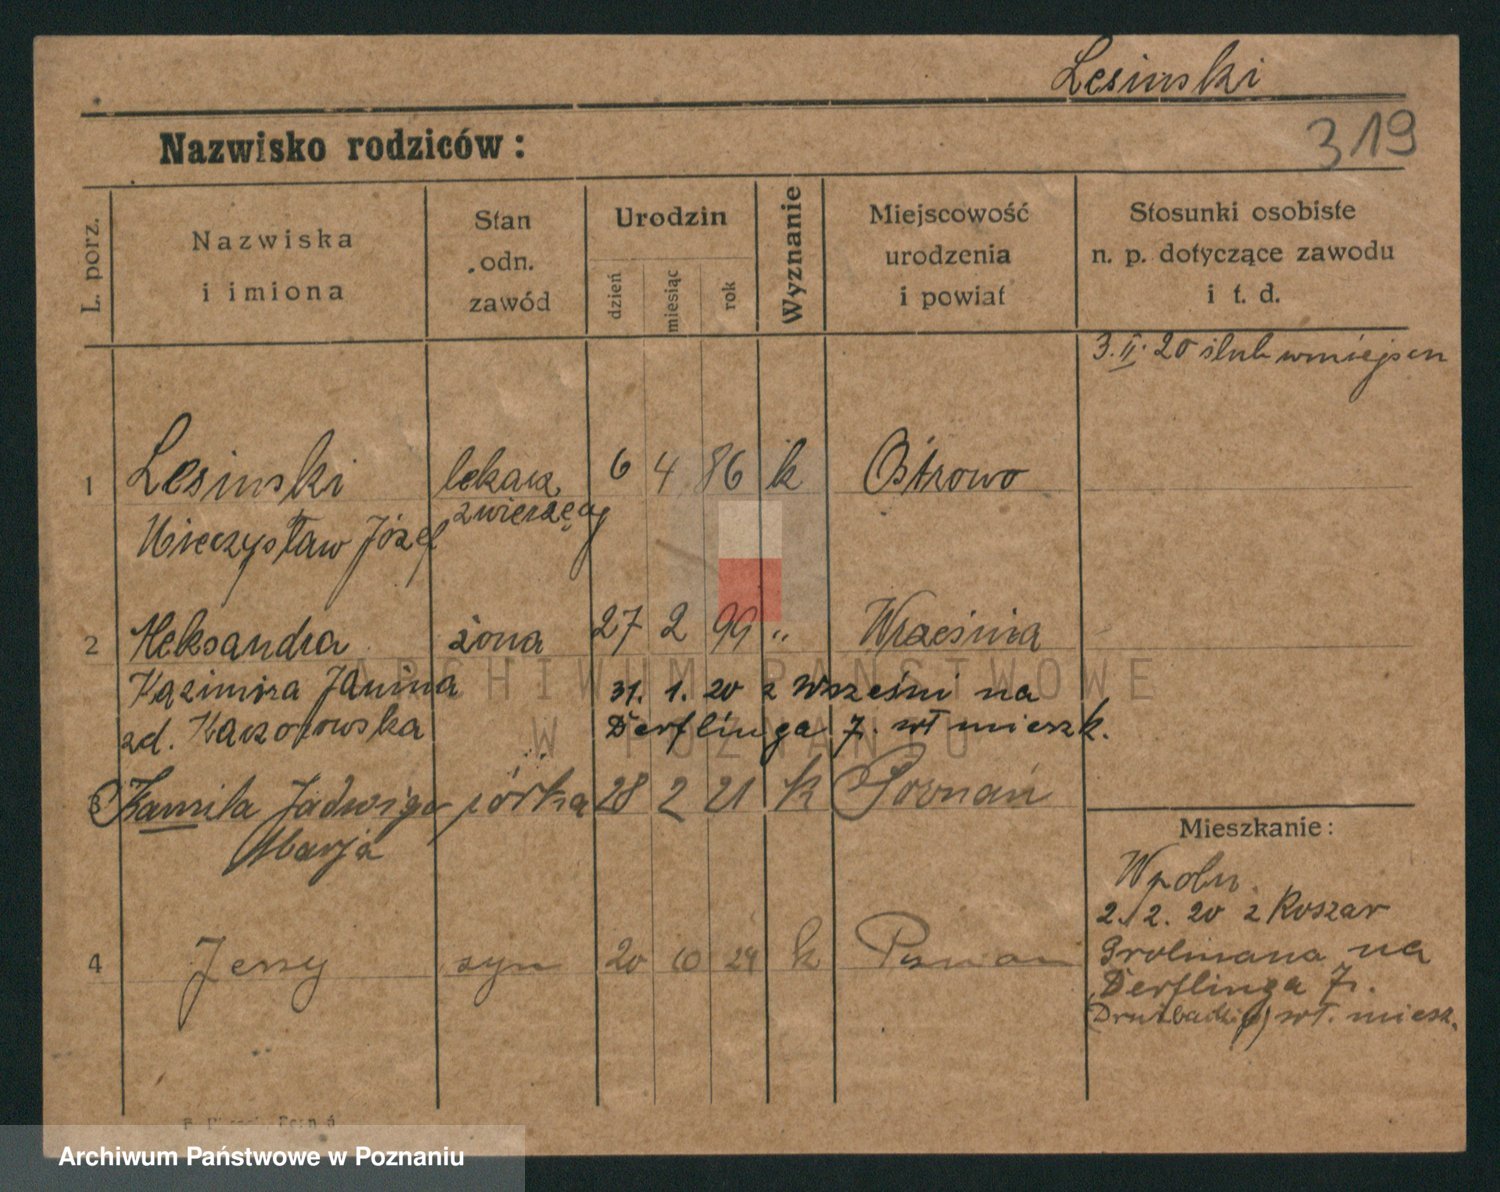 Lesinski
Nazwisko rodziców:
319
L. porz.
Nazwiska
i imiona
Stan
odn.
zawód
Urodzin
dzień
miesiąc
rok
Wyznanie
Miejscowość
urodzenia
i powiat
Stosunki osobiste
n. p. dotyczące zawodu
i t. d.
3.II.20 ślub wmiejscu
1 Lesinski lekarz 6 4 86 k Ostrowo
zwierzęcy
Mieczysław Józef
2 Aleksandra żona 27 2 99 " Września
Kazimira Janina 31. 1. 20 z Wrześni na
zd. Kaczorowska Derflinga 7. wł mieszk.
3 Kamila Jadwiga córka 28 2 21 k Poznań
Marja
Mieszkanie:
2./2. 20 z Koszar
4 Jerzy syn 20 10 24 k Poznan
Grolmana na
Derflinga 7.
wł. miesz.
ARCHIWUM PAŃSTWOWE
W POZNANIU
Archiwum Państwowe w Poznaniu